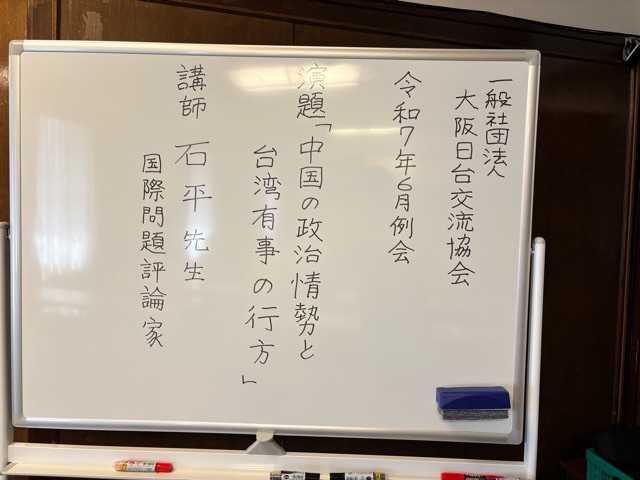 一般社団法人
大阪日台交流協会
令和7年6月例会
演題「中国の政治情勢と
台湾有事の行方」
講師 石平先生
国際問題評論家